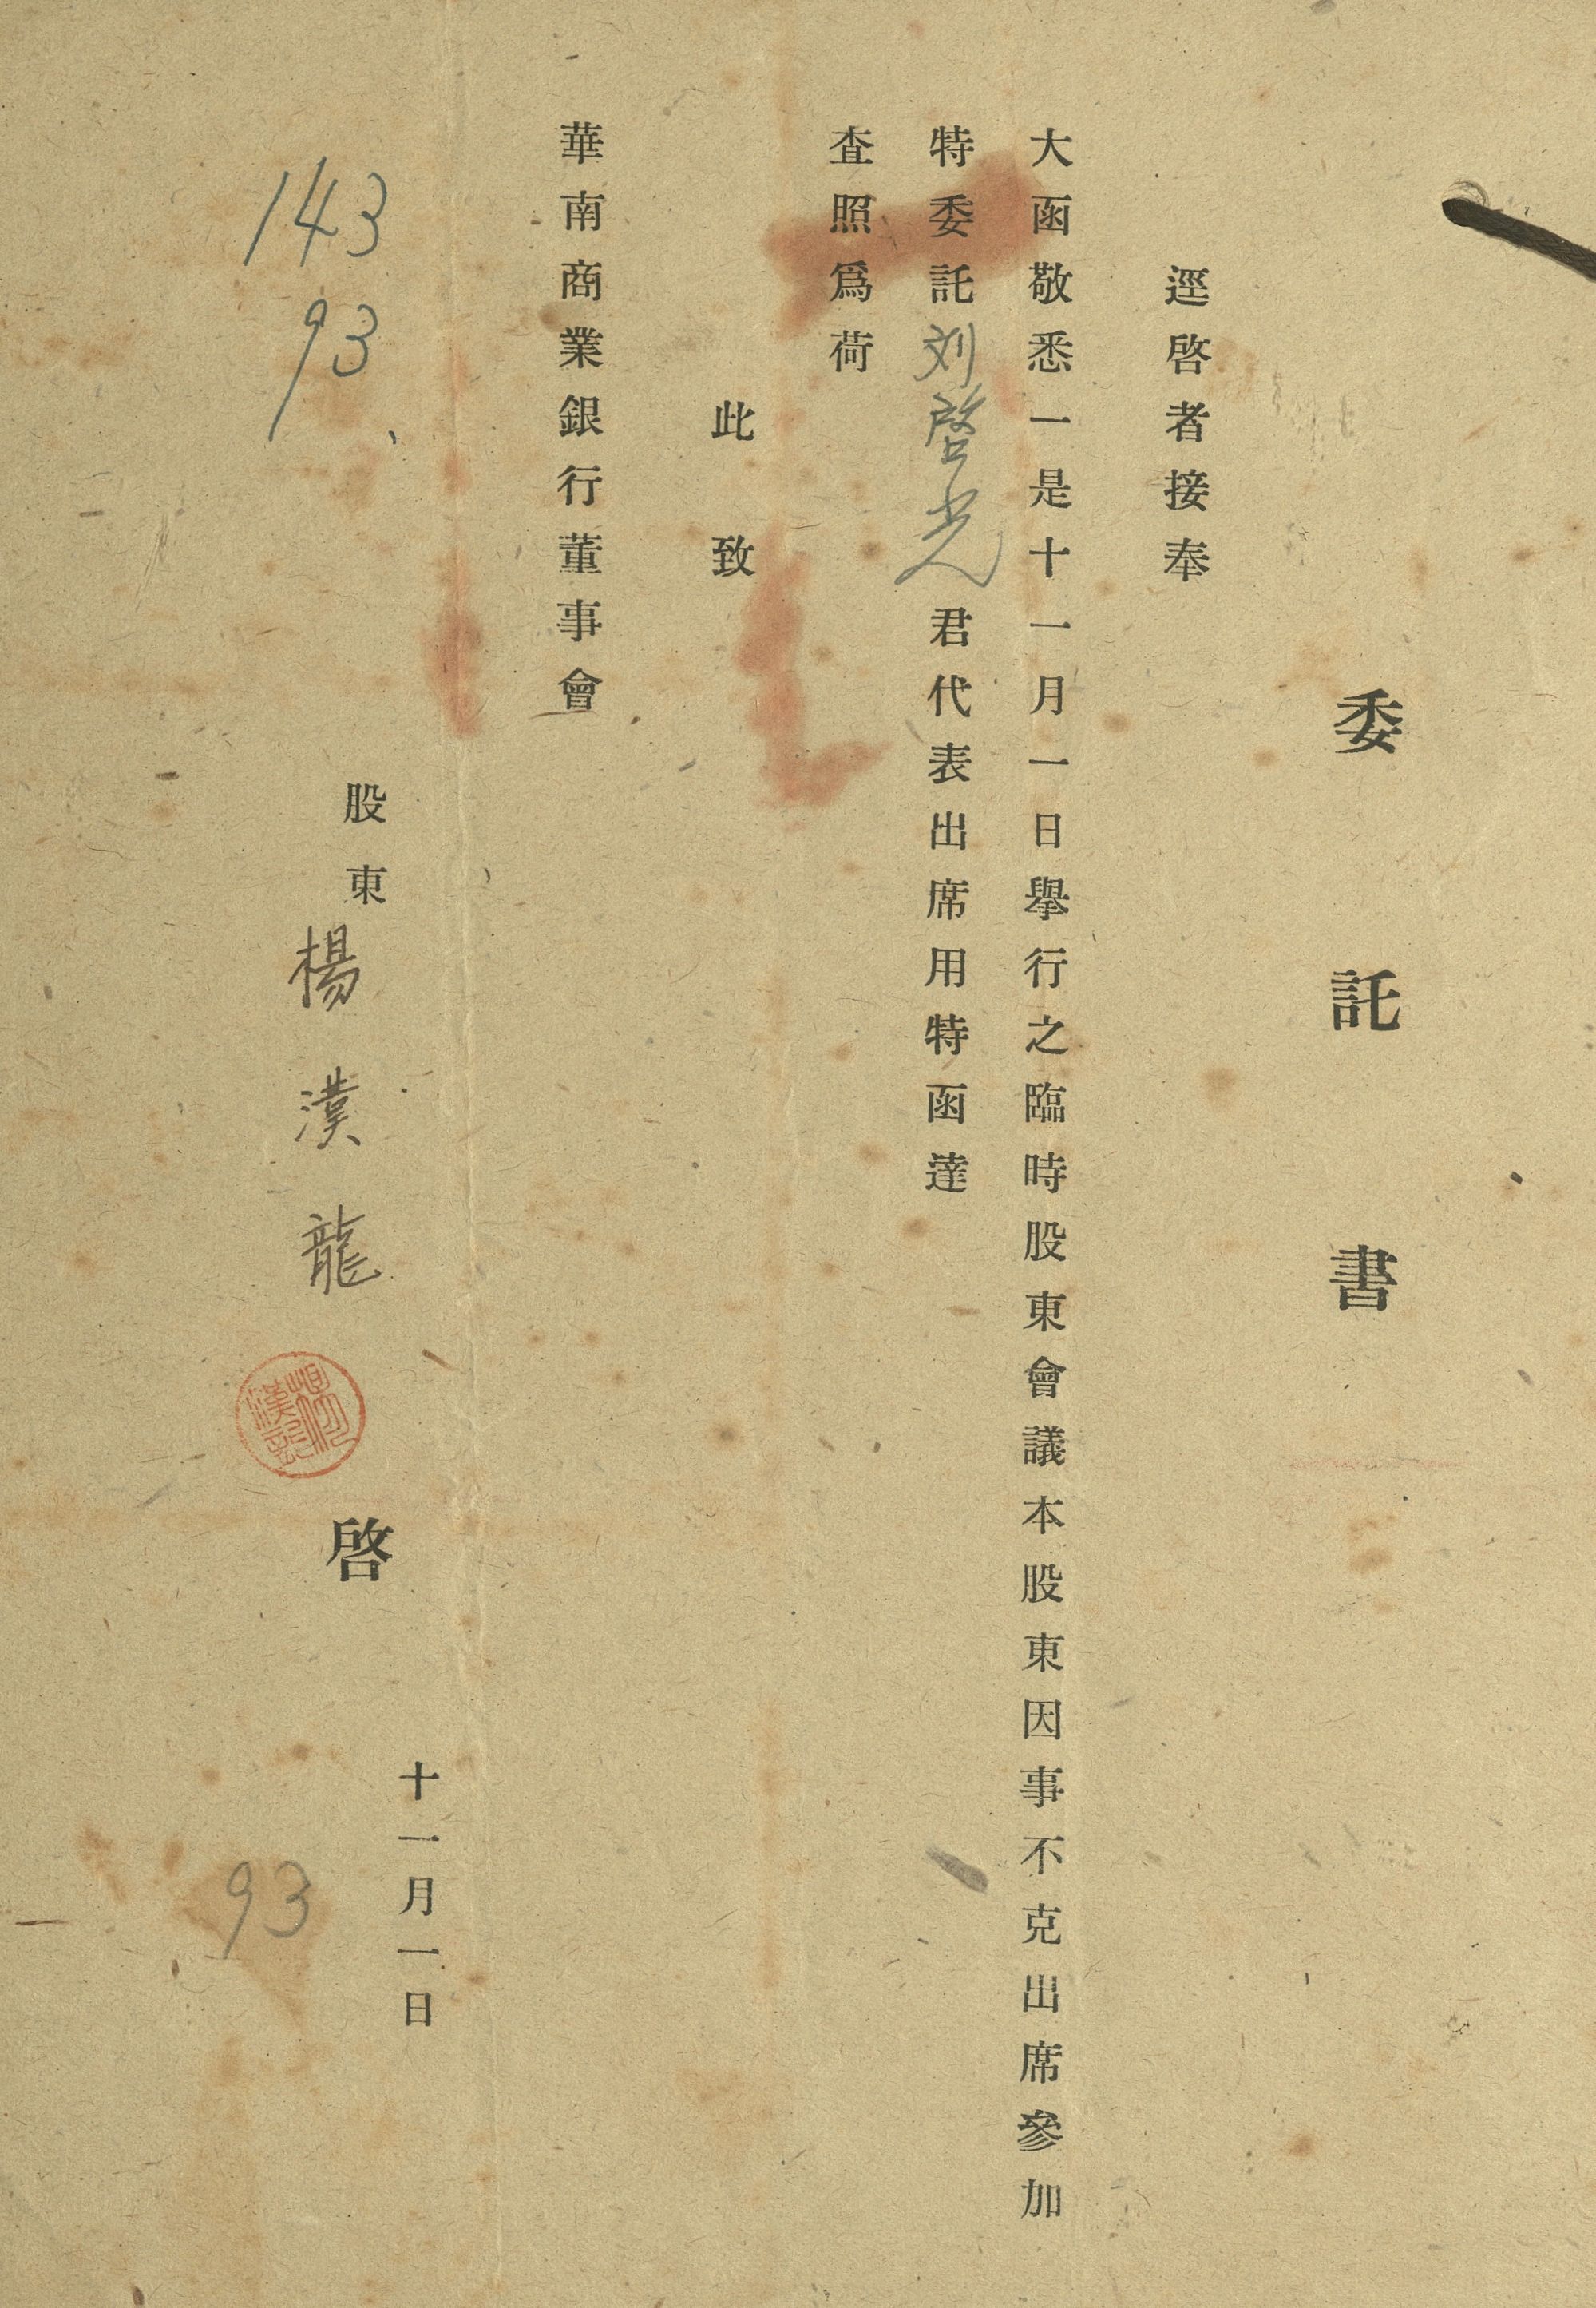 委託書
逕啓者接奉
大函敬悉一是十一月一日舉行之臨時股東會議本股東因事不克出席參加
特委託刘啓光君代表出席用特函達
査照爲荷
此致
華南商業銀行董事會
十一月一日
股東楊漢龍啓
楊
漢龍
143
93
93